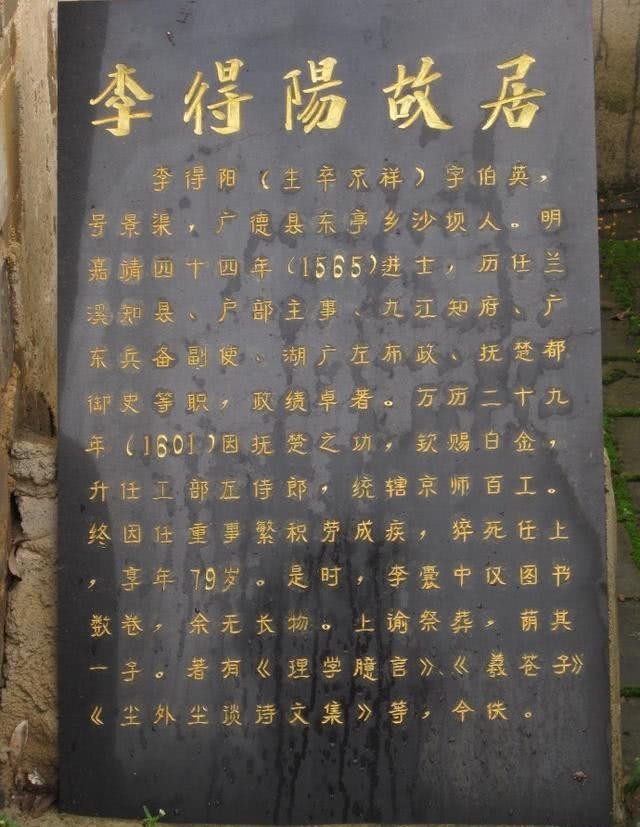 李得陽故居
李得阳（生卒不祥）字伯英，
号景渠，广德县东亭乡沙坝人。明
嘉靖四十四年(1565)进士，历任兰
溪知县、户部主事、九江知府、广
东兵备副使、湖广左布政、抚楚都
御史等职，政绩卓著。万历二十九
年(1601)因抚楚之功，钦赐白金，
升任工部左侍郎，统辖京师百工。
终因任重事繁积劳成疾，猝死任上
，享年79岁。是时，李橐中仅图书
数卷，余无长物。上谕祭葬，荫其
一子。著有《理学臆言》、《羲苍子》
《尘外尘谈诗文集》等，今佚。